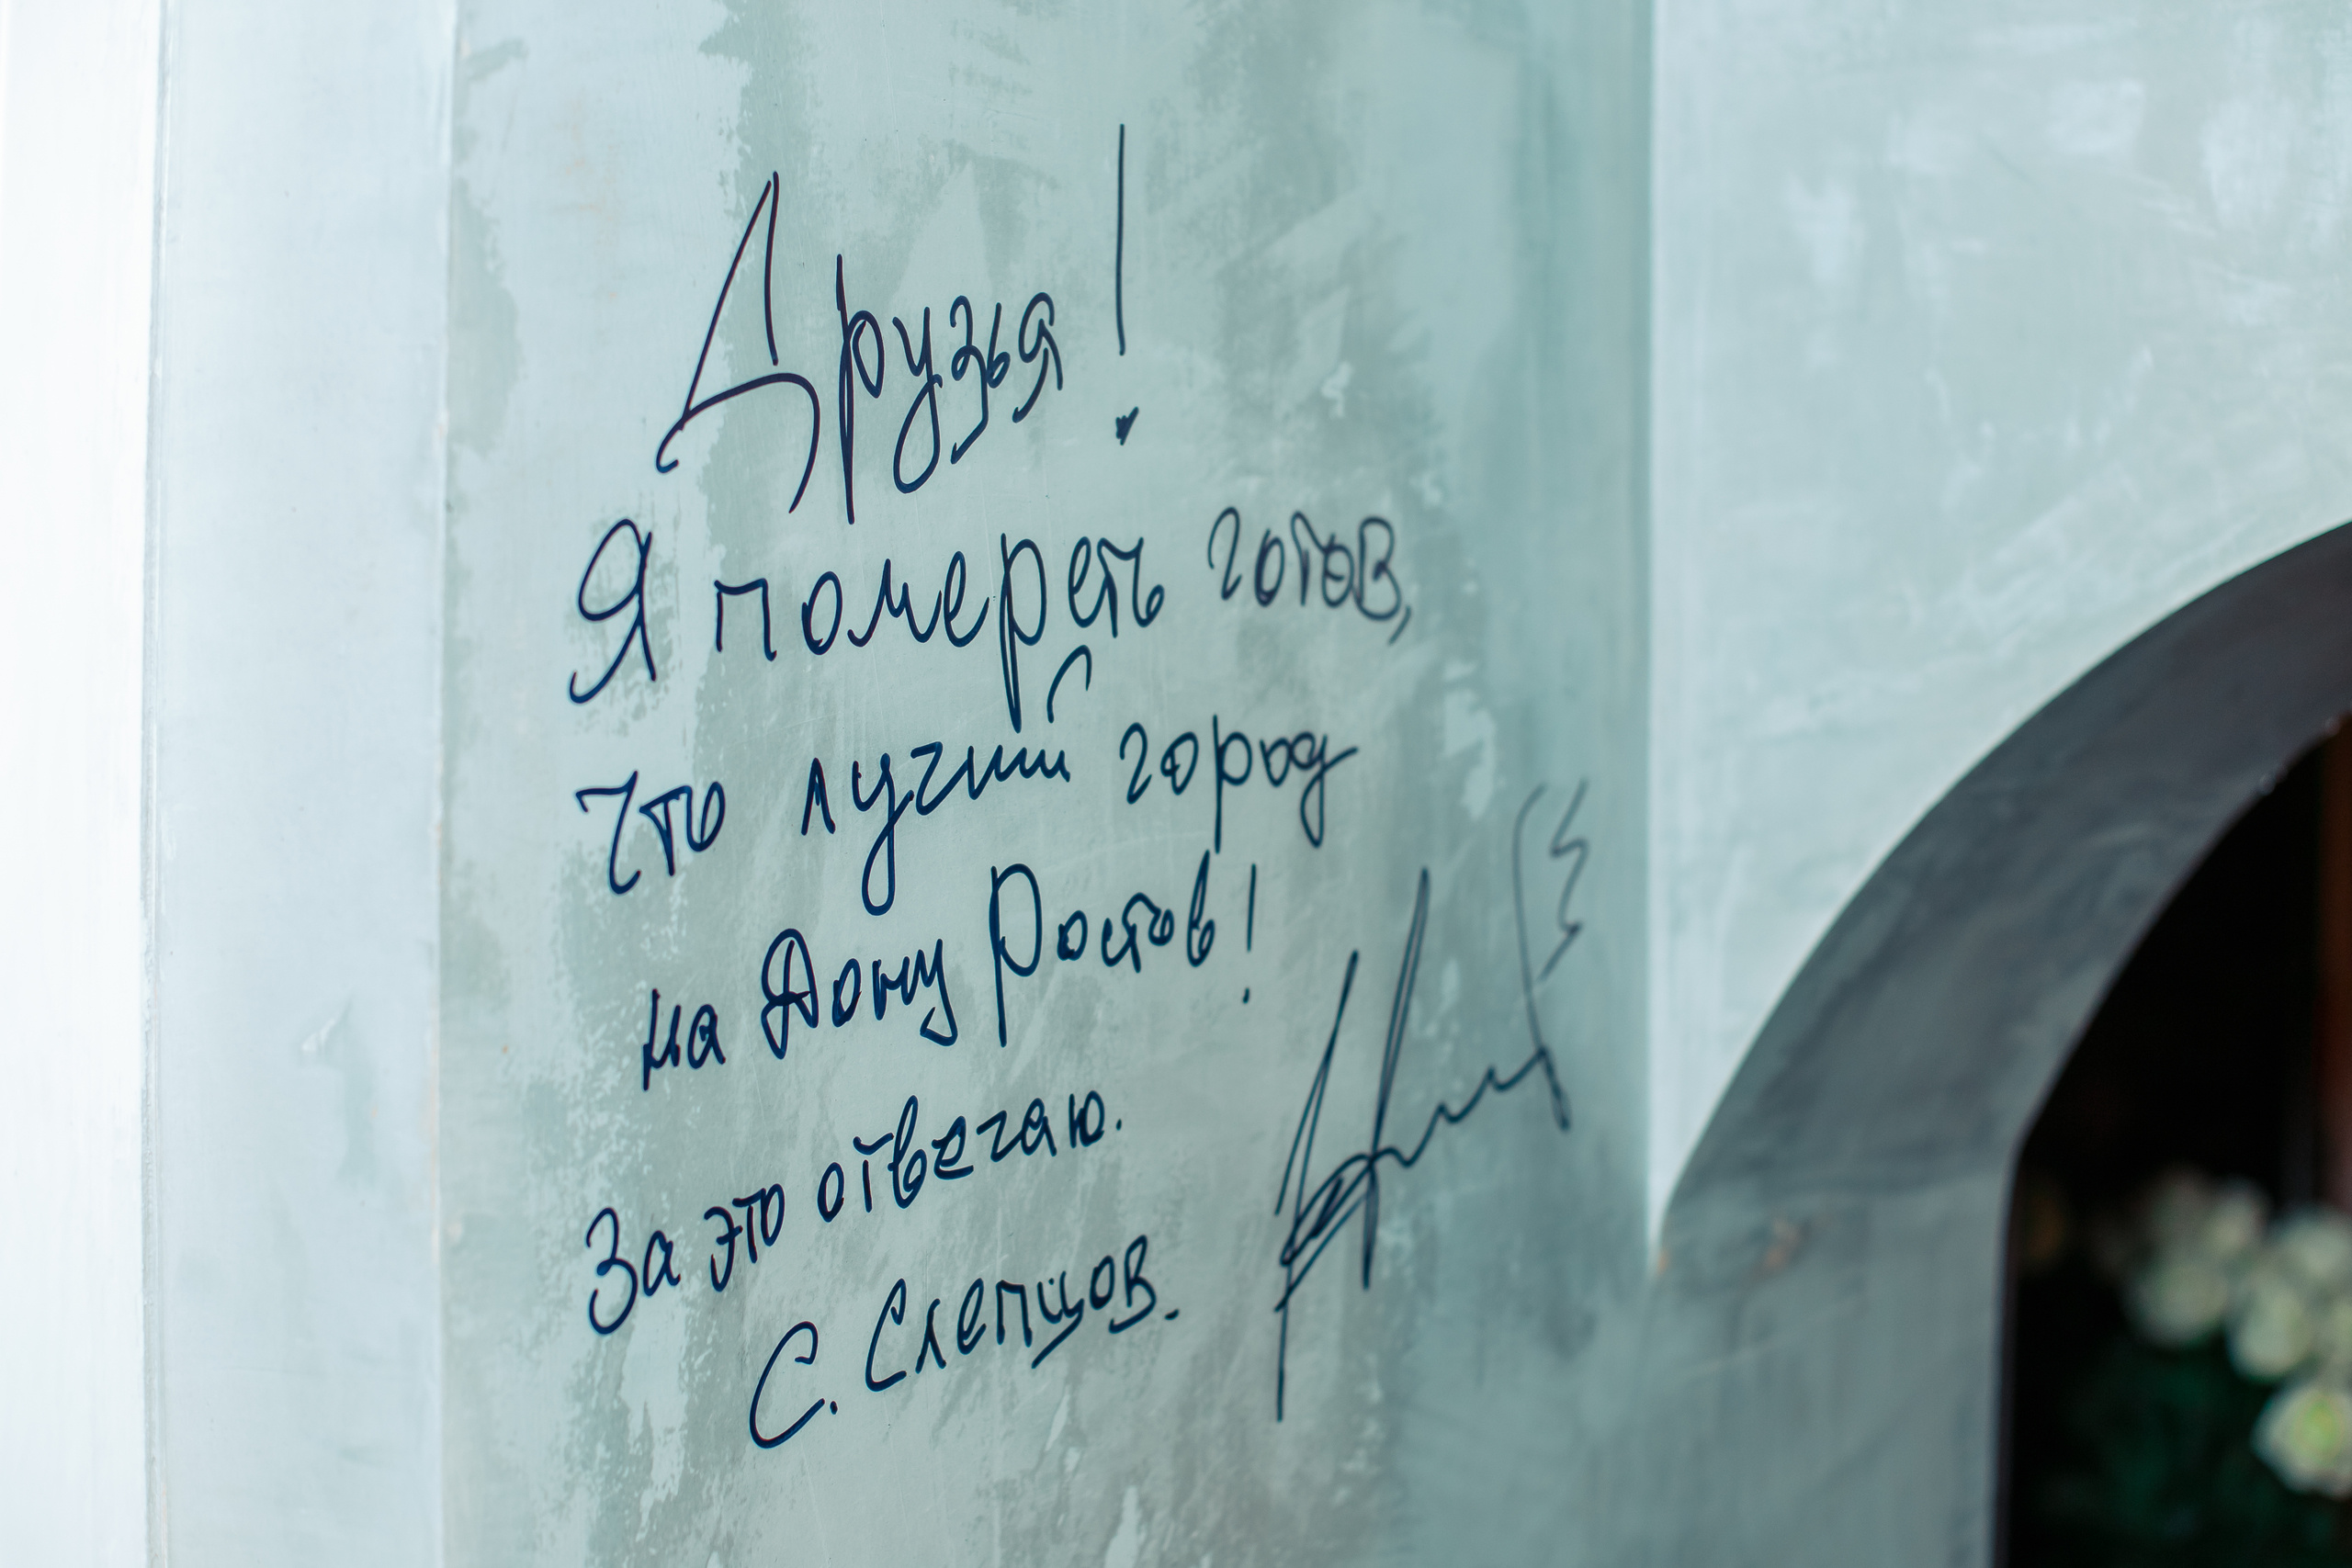 Друзья!
Я помереть готов,
Что лучший город
на Дону Ростов!
За это отвечаю.
С. Слепцов.